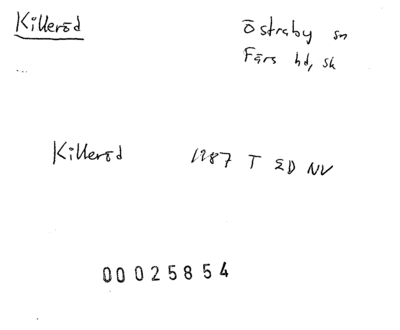 Killeröd
Östraby sn
Färs hd, sk
...
Killeröd 1287 T ED NV
00025854